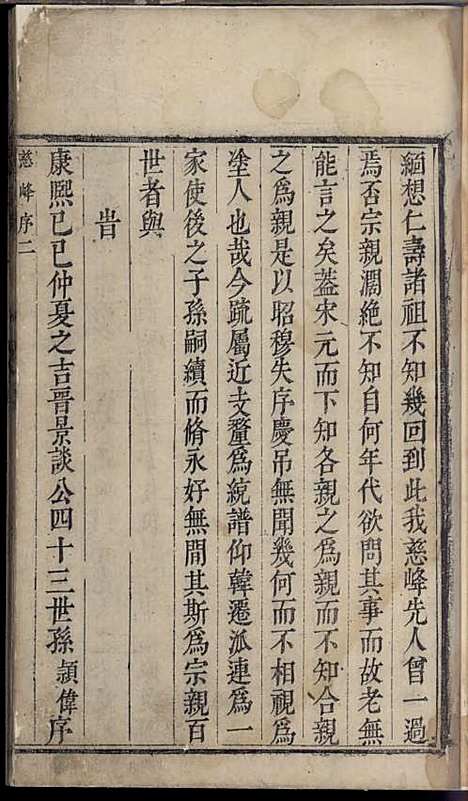 緬想仁壽諸祖不知幾回到此我慈峰先人曾一過
焉否宗親濶絶不知自何年代欲問其事而故老無
能言之矣葢宋元而下知各親之爲親而不知合親
之爲親是以昭穆失序慶吊無聞幾何而不相視爲
塗人也哉今疏屬近支釐爲統譜仰韓遷派連爲一
家使後之子孫嗣續而脩永好無間其斯爲宗親百
世者與
旹
康熙己巳仲夏之吉晉景談公四十三世孫頴偉序
慈峰序二